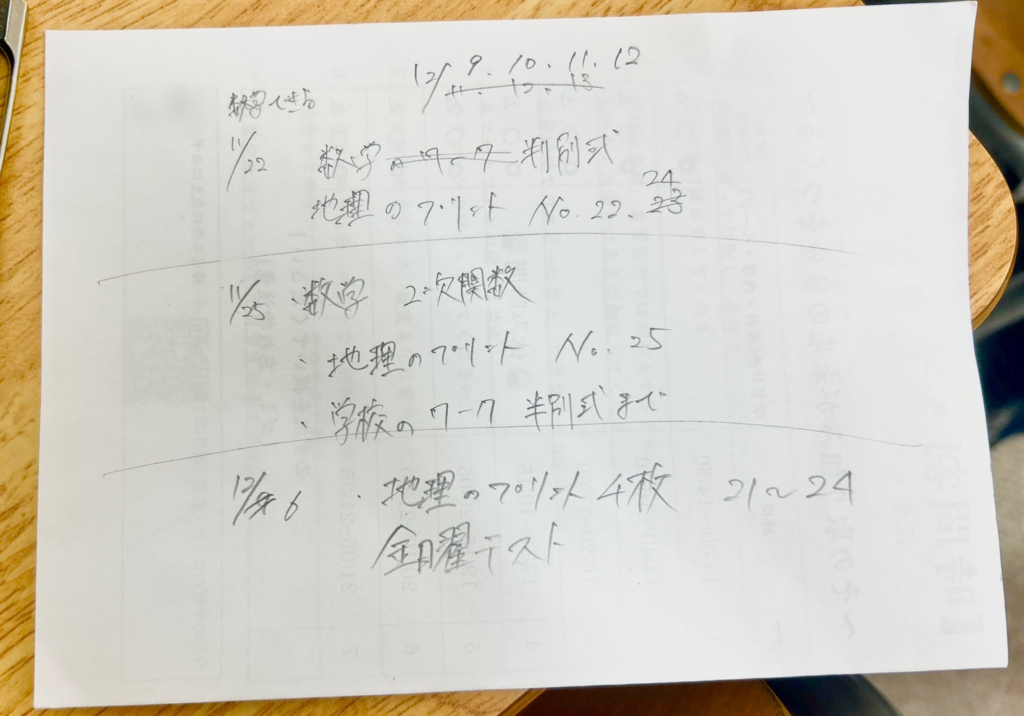 12/ 9. 10. 11. 12
11. 12. 13
数学できる
11/22 数学のワーク 判別式
地理のプリント No. 22. 23 24
11/25 ・数学 2次関数
・地理のプリント No. 25
・学校のワーク 判別式まで
12/6 ・地理のプリント4枚 21〜24
金曜テスト